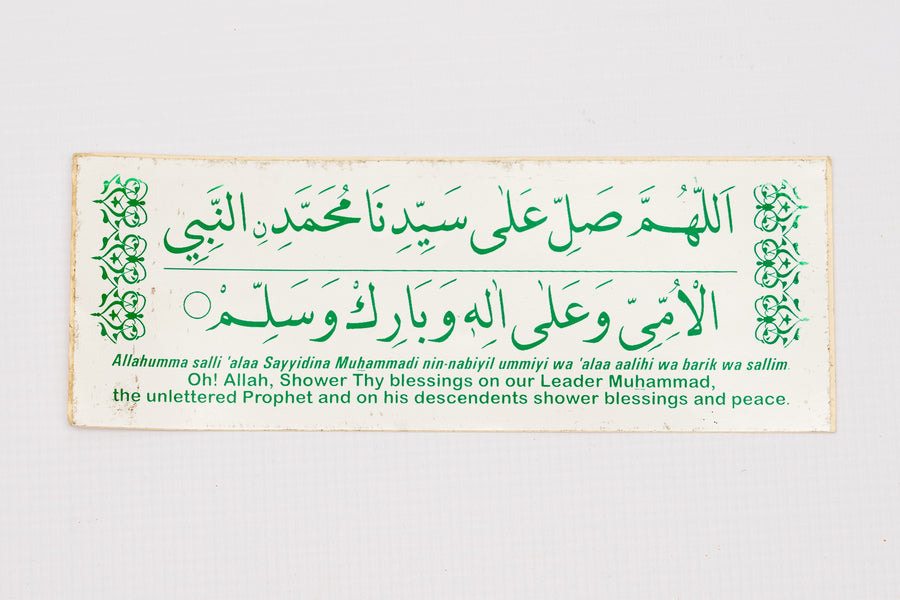 اَللّٰهُمَّ صَلِّ عَلٰى سَيِّدِنَا مُحَمَّدِ نِ النَّبِيِ
الْاُمِّىِّ وَعَلٰى اٰلِهٖ وَبَارِكْ وَسَلِّمْ
Allahumma salli 'alaa Sayyidina Muhammadi nin-nabiyil ummiyi wa 'alaa aalihi wa barik wa sallim.
Oh! Allah, Shower Thy blessings on our Leader Muhammad,
the unlettered Prophet and on his descendents shower blessings and peace.